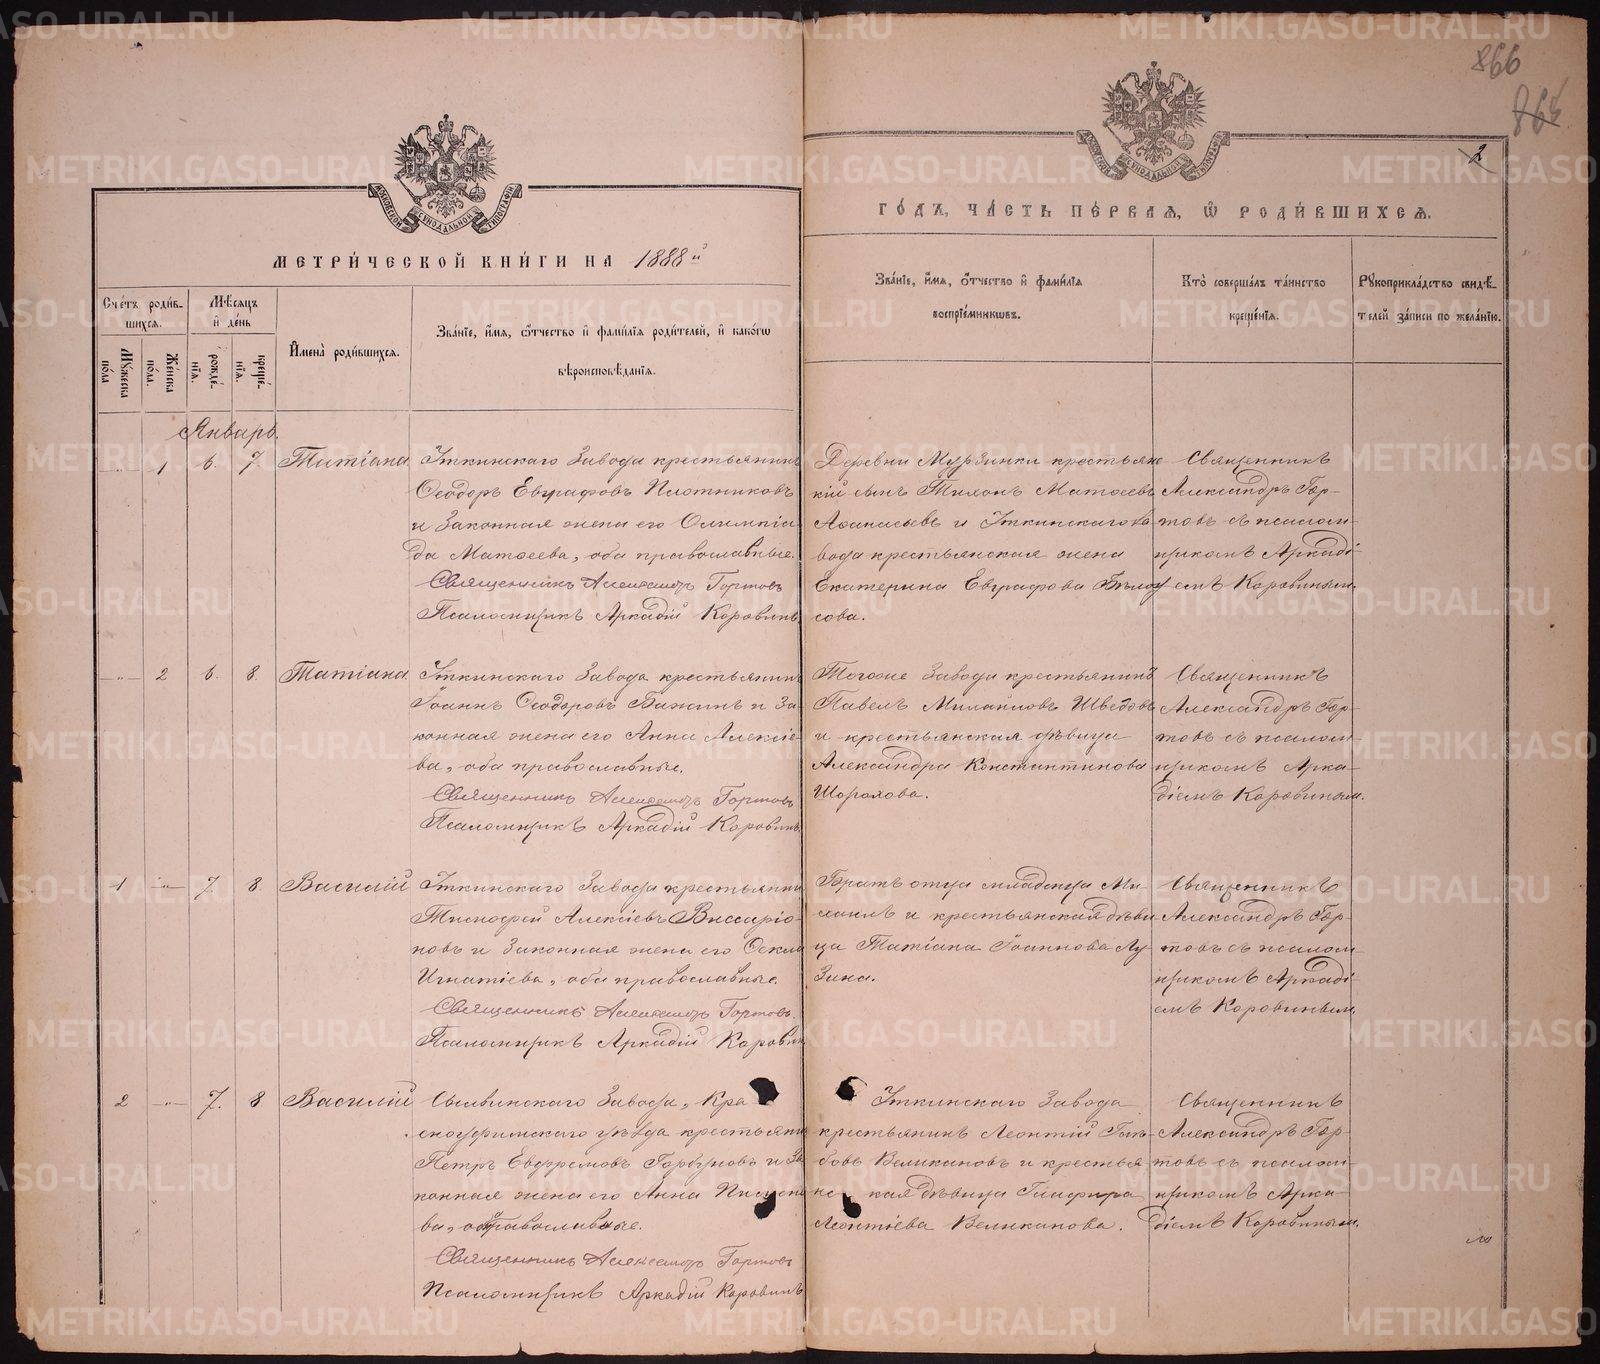 866
866
2
МОСКОВСКОЙ СѴНОДАЛЬНОЙ ТИПОГРАФІИ
МОСКОВСКОЙ СѴНОДАЛЬНОЙ ТИПОГРАФІИ
МЕТРИ́ЧЕСКОЙ КНИ́ГИ НА 1888й
ГО́ДЪ, ЧА́СТЬ ПЕ́РВАЯ, Ѽ РОДИ́ВШИХСЯ.
Сче́тъ роди́в-
шихся.
Мꙋжеска пола
Же́нска по́ла.
Мѣ́сяцъ
и҆ де́нь
рожде́-
нїя.
креще́-
нїя.
И҆мена̀ роди́вшихся.
Зва́нїе, и҆́мя, ѻ҆́тчество и҆ фами́лїя роди́телей, и҆ како́гѡ
вѣроисповѣ́данїя.
Зва́нїе, и҆́мя, ѻ҆́тчество и҆ фами́лїя
воспрїе́мникѡвъ.
Кто̀ соверша́лъ та́инство
креще́нїя.
Рꙋкоприкла́дство свидѣ́-
телей за́писи по жела́нїю.
Январь.
„ 1 6. 7. Татіана
Уткинскаго Завода крестьянинъ
Ѳеодоръ Евграфовъ Плотниковъ
и законная жена его Олимпіа-
да Матѳеева, оба православные.
Священникъ Александръ Гортовъ
Псаломщикъ Аркадій Коровинъ
Деревни Мурзинки крестьянс
кій сынъ Тихонъ Матѳеевъ
Аѳанасьевъ и Уткинскаго за-
вода крестьянская жена
Екатерина Евграфова Бѣлоу-
сова.
Священникъ
Александръ Гор-
товъ съ псалом-
щикомъ Аркаді-
емъ Коровинымъ.
„ 2 6. 8. Татіана
Уткинскаго Завода крестьянинъ
Іоаннъ Ѳеодоровъ Бажинъ и за-
конная жена его Анна Алексіе-
ва, оба православные.
Священникъ Александръ Гортовъ
Псаломщикъ Аркадій Коровинъ.
Тогоже Завода крестьянинъ
Павелъ Михаиловъ Шведовъ
и крестьянская дѣвица
Александра Константинова
Шорохова.
Священникъ
Александръ Гор-
товъ съ псалом-
щикомъ Арка-
діемъ Коровинымъ.
1 „ 7. 8. Василій
Уткинскаго Завода крестьянинъ
Тимофей Алексіевъ Виссаріо-
новъ и законная жена его Ѳекла
Игнатіева, оба православные.
Священникъ Александръ Гортовъ.
Псаломщикъ Аркадій Коровинъ
Братъ отца младенца Ми-
хаилъ и крестьянская дѣви
ца Татіана Іоаннова Лу-
зина.
Священникъ
Александръ Гор-
товъ съ псалом
щикомъ Аркаді-
емъ Коровинымъ.
2 „ 7. 8. Василій
Сылвинскаго Завода, Кра
сноуфимскаго уѣзда крестьянинъ
Петръ Евфремовъ Горбуновъ и за
конная жена его Анна
ва, оба православные.
Священникъ Александръ Гортовъ
Псаломщикъ Аркадій Коровинъ
Уткинскаго Завода
крестьянинъ Леонтій Глѣ-
бовъ Великановъ и крестья
нс кая дѣвица Глафира
Леонтіева Великанова.
Священникъ
Александръ Гор-
товъ съ псалом-
щикомъ Арка-
діемъ Коровинымъ.
METRIKI.GASO-URAL.RU